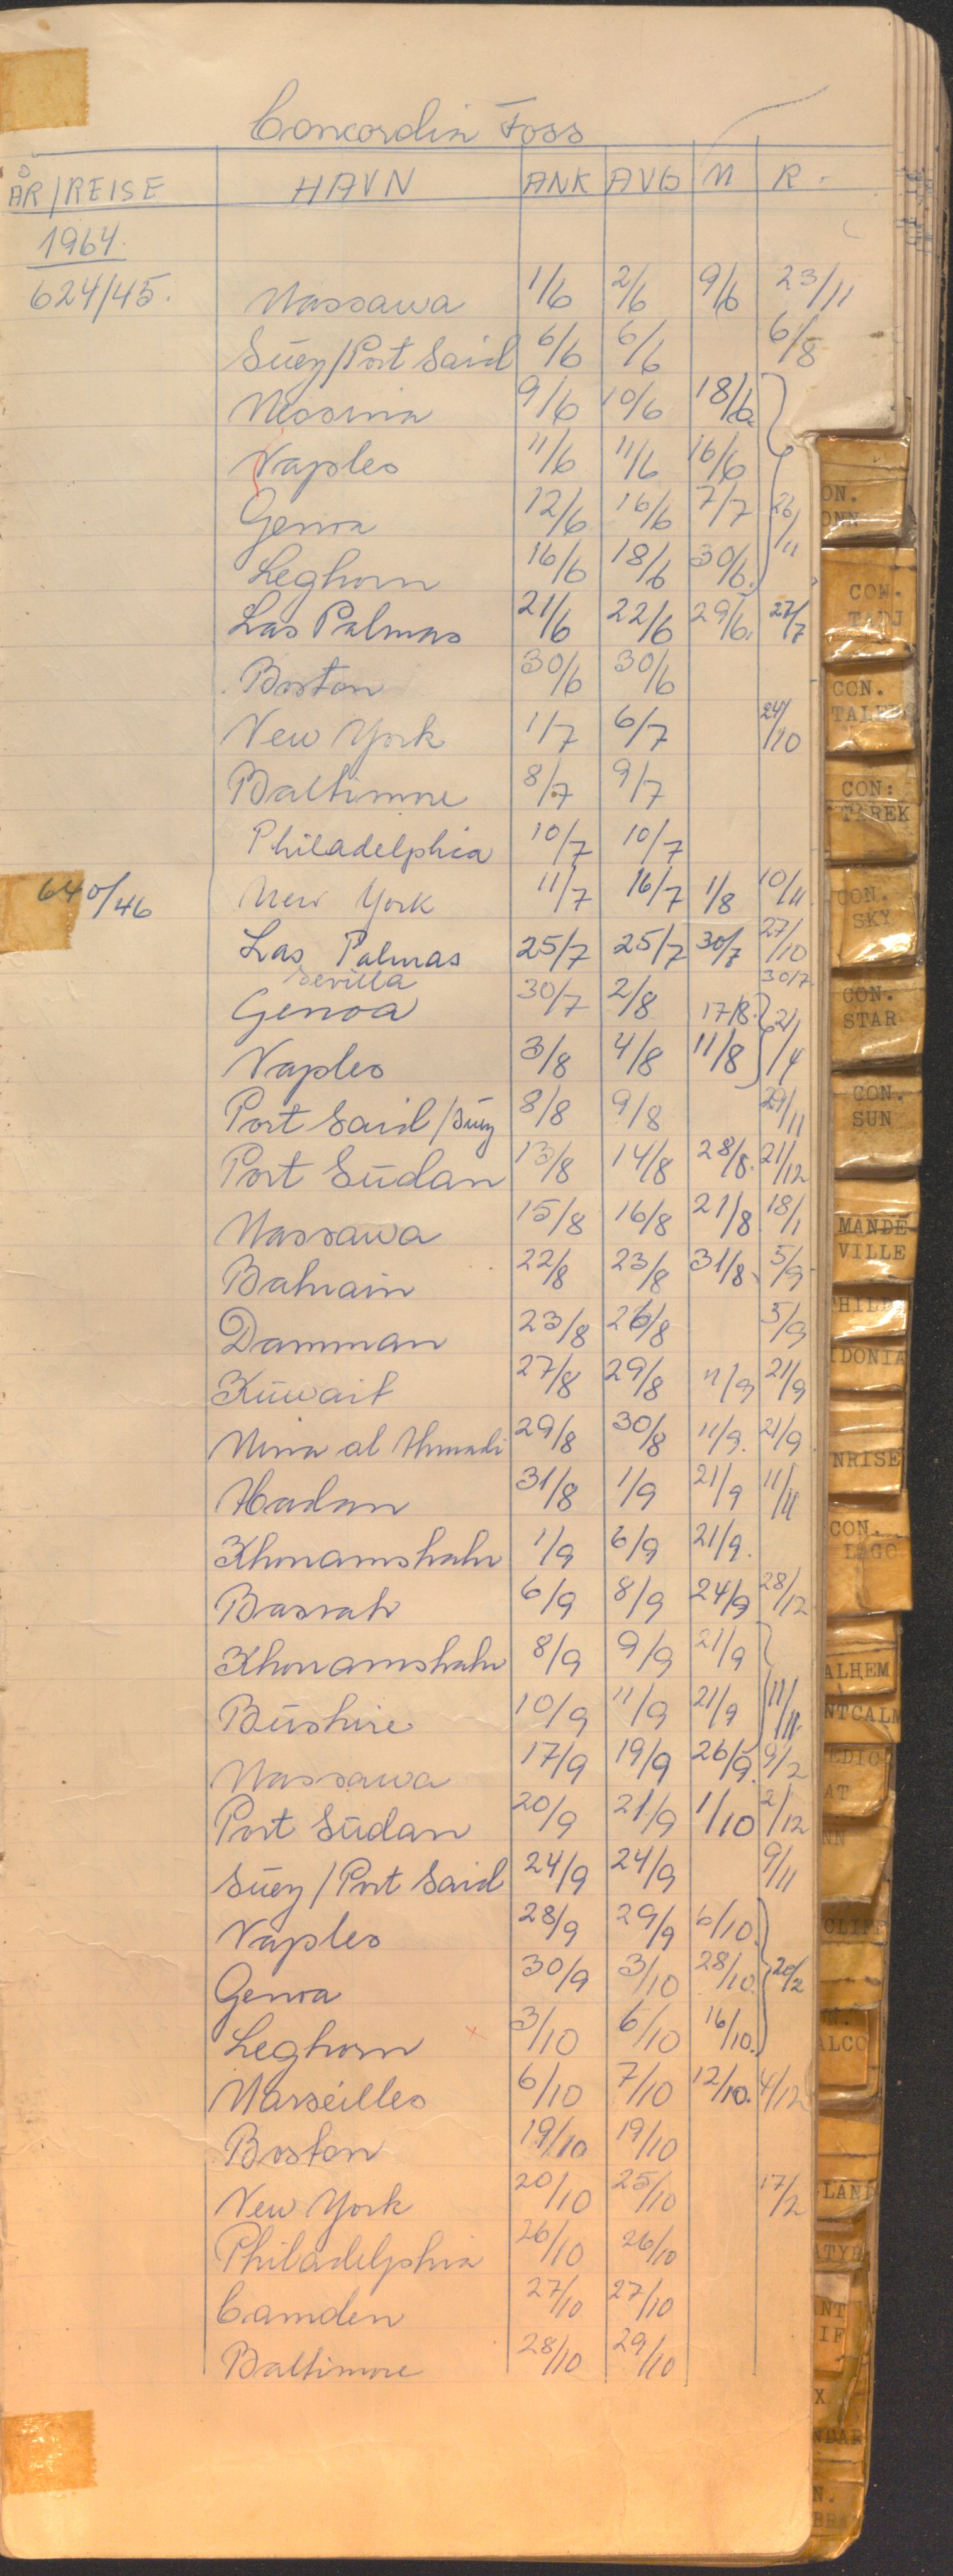 Concordia Foss
ÅR/REISE HAVN ANK AVG M R.
1964.
624/45. Massawa 1/6 2/6 9/6 23/11
Suez/Port Said 6/6 6/6 6/8
Messina 9/6 10/6 18/6
Naples 11/6 11/6 16/6
Genoa 12/6 16/6 7/7 26/11
Leghorn 16/6 18/6 30/6.
Las Palmas 21/6 22/6 29/6. 27/7
Boston 30/6 30/6
New York 1/7 6/7 24/10
Baltimore 8/7 9/7
Philadelphia 10/7 10/7
640/46 New York 11/7 16/7 1/8 10/11
Las Palmas 25/7 25/7 30/7 27/10
Sevilla 30/7
Genoa 30/7 2/8 17/8.
Naples 3/8 4/8 11/8
Port Said/Suez 8/8 9/8 29/11
Port Sūdan 13/8 14/8 28/8. 21/12
Massawa 15/8 16/8 21/8 18/1
Bahrain 22/8 23/8 31/8 5/9
Damman 23/8 26/8 5/9
Kūwait 27/8 29/8 11/9 21/9
Mina al Ahmadi 29/8 30/8 11/9. 21/9
Abadan 31/8 1/9 21/9 11/11
Khoramshahr 1/9 6/9 21/9.
Basrah 6/9 8/9 24/9 28/12
Khoramshahr 8/9 9/9 21/9
Būshire 10/9 11/9 21/9 11/11
Massawa 17/9 19/9 26/9. 9/2
Port Sūdan 20/9 21/9 1/10 2/12
Suez/Port Said 24/9 24/9 9/11
Naples 28/9 29/9 6/10.
Genoa 30/9 3/10 28/10. 20/2
Leghorn 3/10 6/10 16/10.
Marseilles 6/10 7/10 12/10. 4/12
Boston 19/10 19/10
New York 20/10 25/10 17/2
Philadelphia 26/10 26/10
Camden 27/10 27/10
Baltimore 28/10 29/10
CON.
TADJ
CON.
CON:
TAREK
CON.
SKY
CON.
STAR
CON.
SUN
MANDE
VILLE
IDONIA
NRISE
CON.
ALHEM
NTCALM